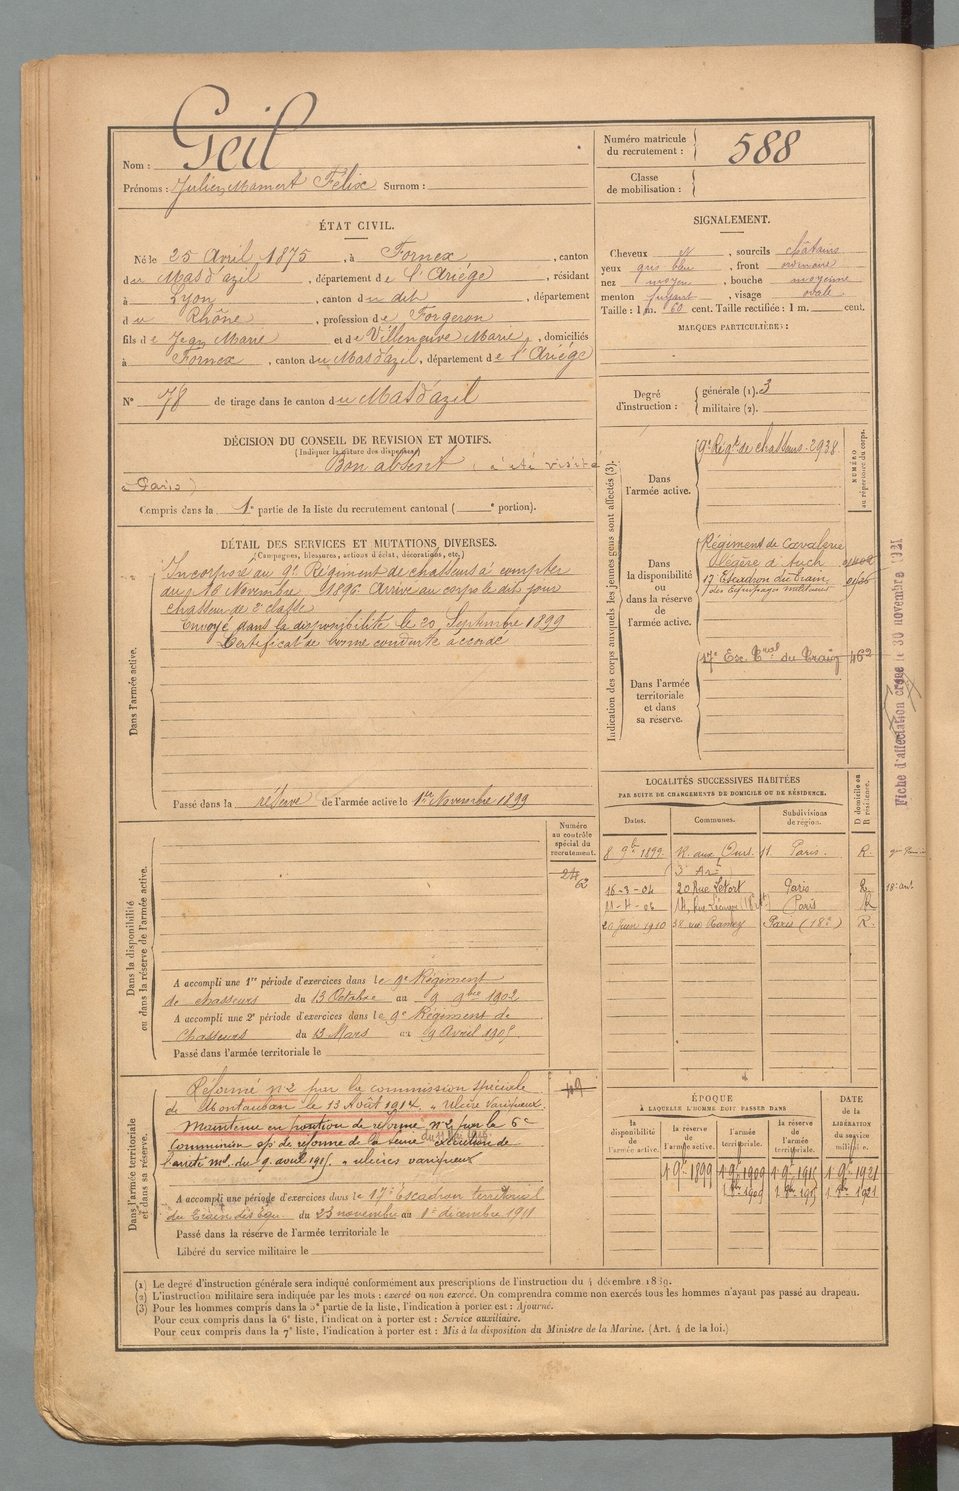 Nom : Geil
Prénoms : Julien Mamert Félix Surnom :
Numéro matricule du recrutement : 588
Classe de mobilisation :
ÉTAT CIVIL.
Né le 25 Avril 1875, à Fornex, canton
du Mas d'azil, département de l'Ariège, résidant
à Lyon, canton du dit, département
du Rhône, profession de Forgeron
fils de Jean Marie et de Villeneuve Marie, domiciliés
à Fornex, canton du Mas d'azil, département de l'Ariège
N° 78 de tirage dans le canton du Mas d'azil
SIGNALEMENT.
Cheveux et, sourcils châtains
yeux gris bleu, front ordinaire
nez moyen, bouche moyenne
menton fuyant, visage ovale
Taille : 1 m. 60 cent. Taille rectifiée : 1 m. cent.
MARQUES PARTICULIÈRES :
Degré d'instruction : générale (1). 3
militaire (2).
DÉCISION DU CONSEIL DE REVISION ET MOTIFS.
(Indiquer la nature des dispenses)
Bon absent (a été visité
à Paris)
Compris dans la 1e partie de la liste du recrutement cantonal ( e portion).
DÉTAIL DES SERVICES ET MUTATIONS DIVERSES.
(Campagnes, blessures, actions d'éclat, décorations, etc.)
Dans l'armée active.
Incorporé au 9e Régiment de chasseurs à compter
du 16 Novembre 1896 Arrivé au corps le dit jour
chasseur de 2e classe
Envoyé dans la disponibilité le 20 Septembre 1899
Certificat de bonne conduite accordé
Passé dans la réserve de l'armée active le 1er Novembre 1899
Indication des corps auxquels les jeunes gens sont affectés (3).
NUMÉRO au répertoire du corps.
Dans l'armée active.
9e Régt de chasseurs - 2938
Dans la disponibilité ou dans la réserve de l'armée active.
Régiment de Cavalerie
Légère d'Auch
17 Escadron du Train
des Equipages militaires
Dans l'armée territoriale et dans sa réserve.
17e Esc. Tal du Train 462
Fiche d'affectation créée le 30 novembre 1921
LOCALITÉS SUCCESSIVES HABITÉES
PAR SUITE DE CHANGEMENTS DE DOMICILE OU DE RÉSIDENCE.
Dates. Communes. Subdivisions de région. D domicile ou R résidence.
8 9b 1899 R. aux Ours 11 Paris R.
3e Arr
16-3-04 20 Rue Letort Paris R. 18e arrt
11-4-06 Paris R
20 Juin 1910 38 rue Ramey Paris (18e) R.
Dans la disponibilité ou dans la réserve de l'armée active.
Numéro au contrôle spécial du recrutement.
62
A accompli une 1re période d'exercices dans le 9e Régiment
de chasseurs du 13 Octobre au 9 9bre 1902
A accompli une 2e période d'exercices dans le 9e Régiment de
Chasseurs du 13 Mars au 9 Avril 1905
Passé dans l'armée territoriale le
Dans l'armée territoriale et dans sa réserve.
Réformé n° 2 par la commission spéciale
de Montauban le 13 Août 1914. "Ulcère variqueux.
Maintenu en position de réforme n° 2 par la 6e
Commission spe de réforme de la Seine exécution de
l'arrêté mel du 9 avril 1915 "ulcères variqueux
A accompli une période d'exercices dans le 17e Escadron territorial
du Train des Equ. du 23 novembre au 1er décembre 1911
Passé dans la réserve de l'armée territoriale le
Libéré du service militaire le
ÉPOQUE
À LAQUELLE L'HOMME DOIT PASSER DANS
la disponibilité de l'armée active. la réserve de l'armée active. l'armée territoriale. la réserve de l'armée territoriale. DATE de la LIBÉRATION du service militaire.
1 9b 1899 1 9b 1909 1 9b 1915 1 9b 1921
1909 1915 1921
(1) Le degré d'instruction générale sera indiqué conformément aux prescriptions de l'instruction du 4 décembre 1889.
(2) L'instruction militaire sera indiquée par les mots : exercé ou non exercé. On comprendra comme non exercés tous les hommes n'ayant pas passé au drapeau.
(3) Pour les hommes compris dans la 5e partie de la liste, l'indication à porter est : Ajourné.
Pour ceux compris dans la 6e liste, l'indication à porter est : Service auxiliaire.
Pour ceux compris dans la 7e liste, l'indication à porter est : Mis à la disposition du Ministre de la Marine. (Art. 4 de la loi.)